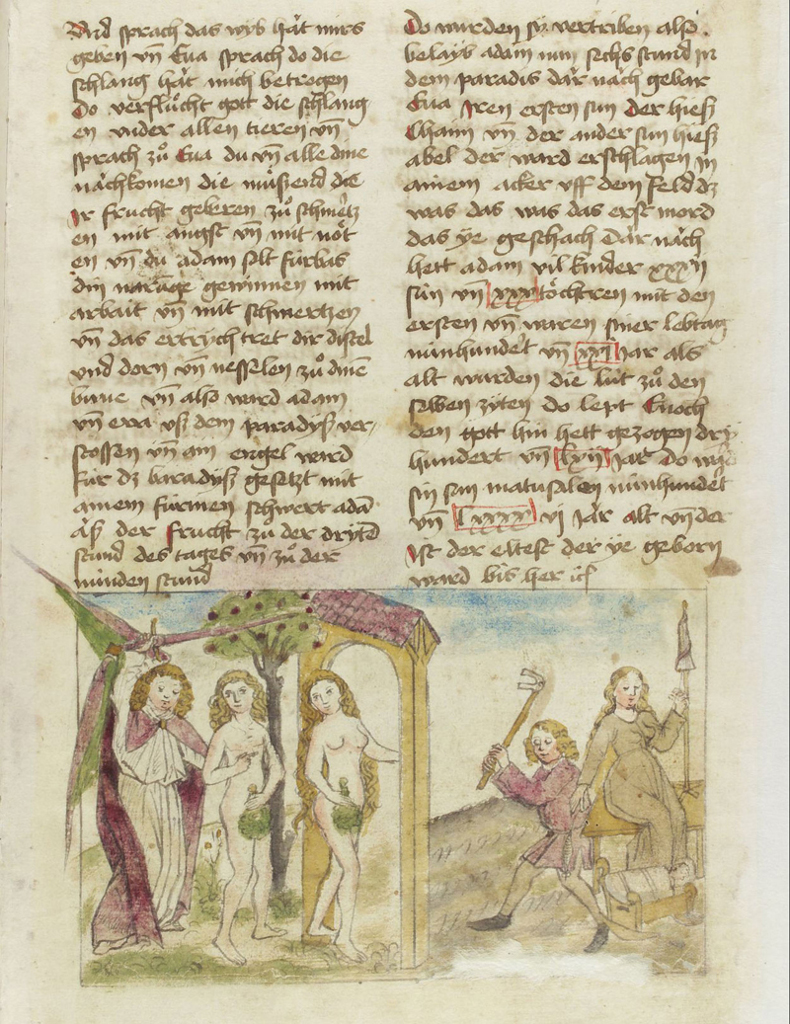 Und sprach das wyb hǎt mirs
geben vn̄ Eua sprach do die
schlang hǎt mich betrogen
Do verflůcht gott die schlang
en vnder allen tieren vn̄
sprach zů Eua du vn̄ alle dine
nǎchkomen die můßend die
Ir frucht geberen zů schmertz
en mit angst vn̄ mit nǒt
en vn̄ du adam solt fúrbas
din narǎge gewinnen mit
arbait vn̄ mit schmertzen
vn̄ das ertrych tret dir distel
vnd dorn vn̄ nesselen zů dine
buwe vn̄ also ward adam
vn̄ eua vß dem paradyß ver/
stossen vn̄ ain engel ward
fúr dz baradyß gesetzt mit
ainem fúrinen schwert adā
ǎß der frucht zů der dryttē
stund des tages vn̄ zů der
núnden stund
Do wurden sy vertriben also .
belayb adam nun sechs stund in
dem paradis dar nǎch gebar
Eua Iren ersten sun der hieß
Chaim vn̄ der ander sun hieß
abel der ward erschlagen in
ainem acker vff dem feld dz
was das was das erst mord
das ye geschach Dar nǎch
hett adam vil kinder xxxij
sún vn̄ xxx tǒchtren mit den
ersten vn̄ waren siner lebtag
núnhundet vn̄ xxx Jar als
alt wurden die lút zů den
selben zyten do lept Enoch
den gott hin hett gezogen dry
hundert vn̄ lxv Jar Do
sin sun matusalen núnhundet
vn̄ lxxxx vj Jǎr alt vn̄ der
Ist der eltest der ye geborn
ward bis her